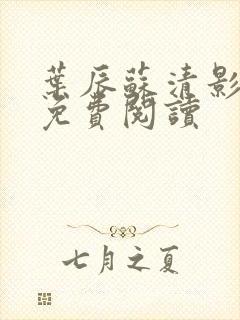 葉辰蘇清影
免費閱讀
七月之夏